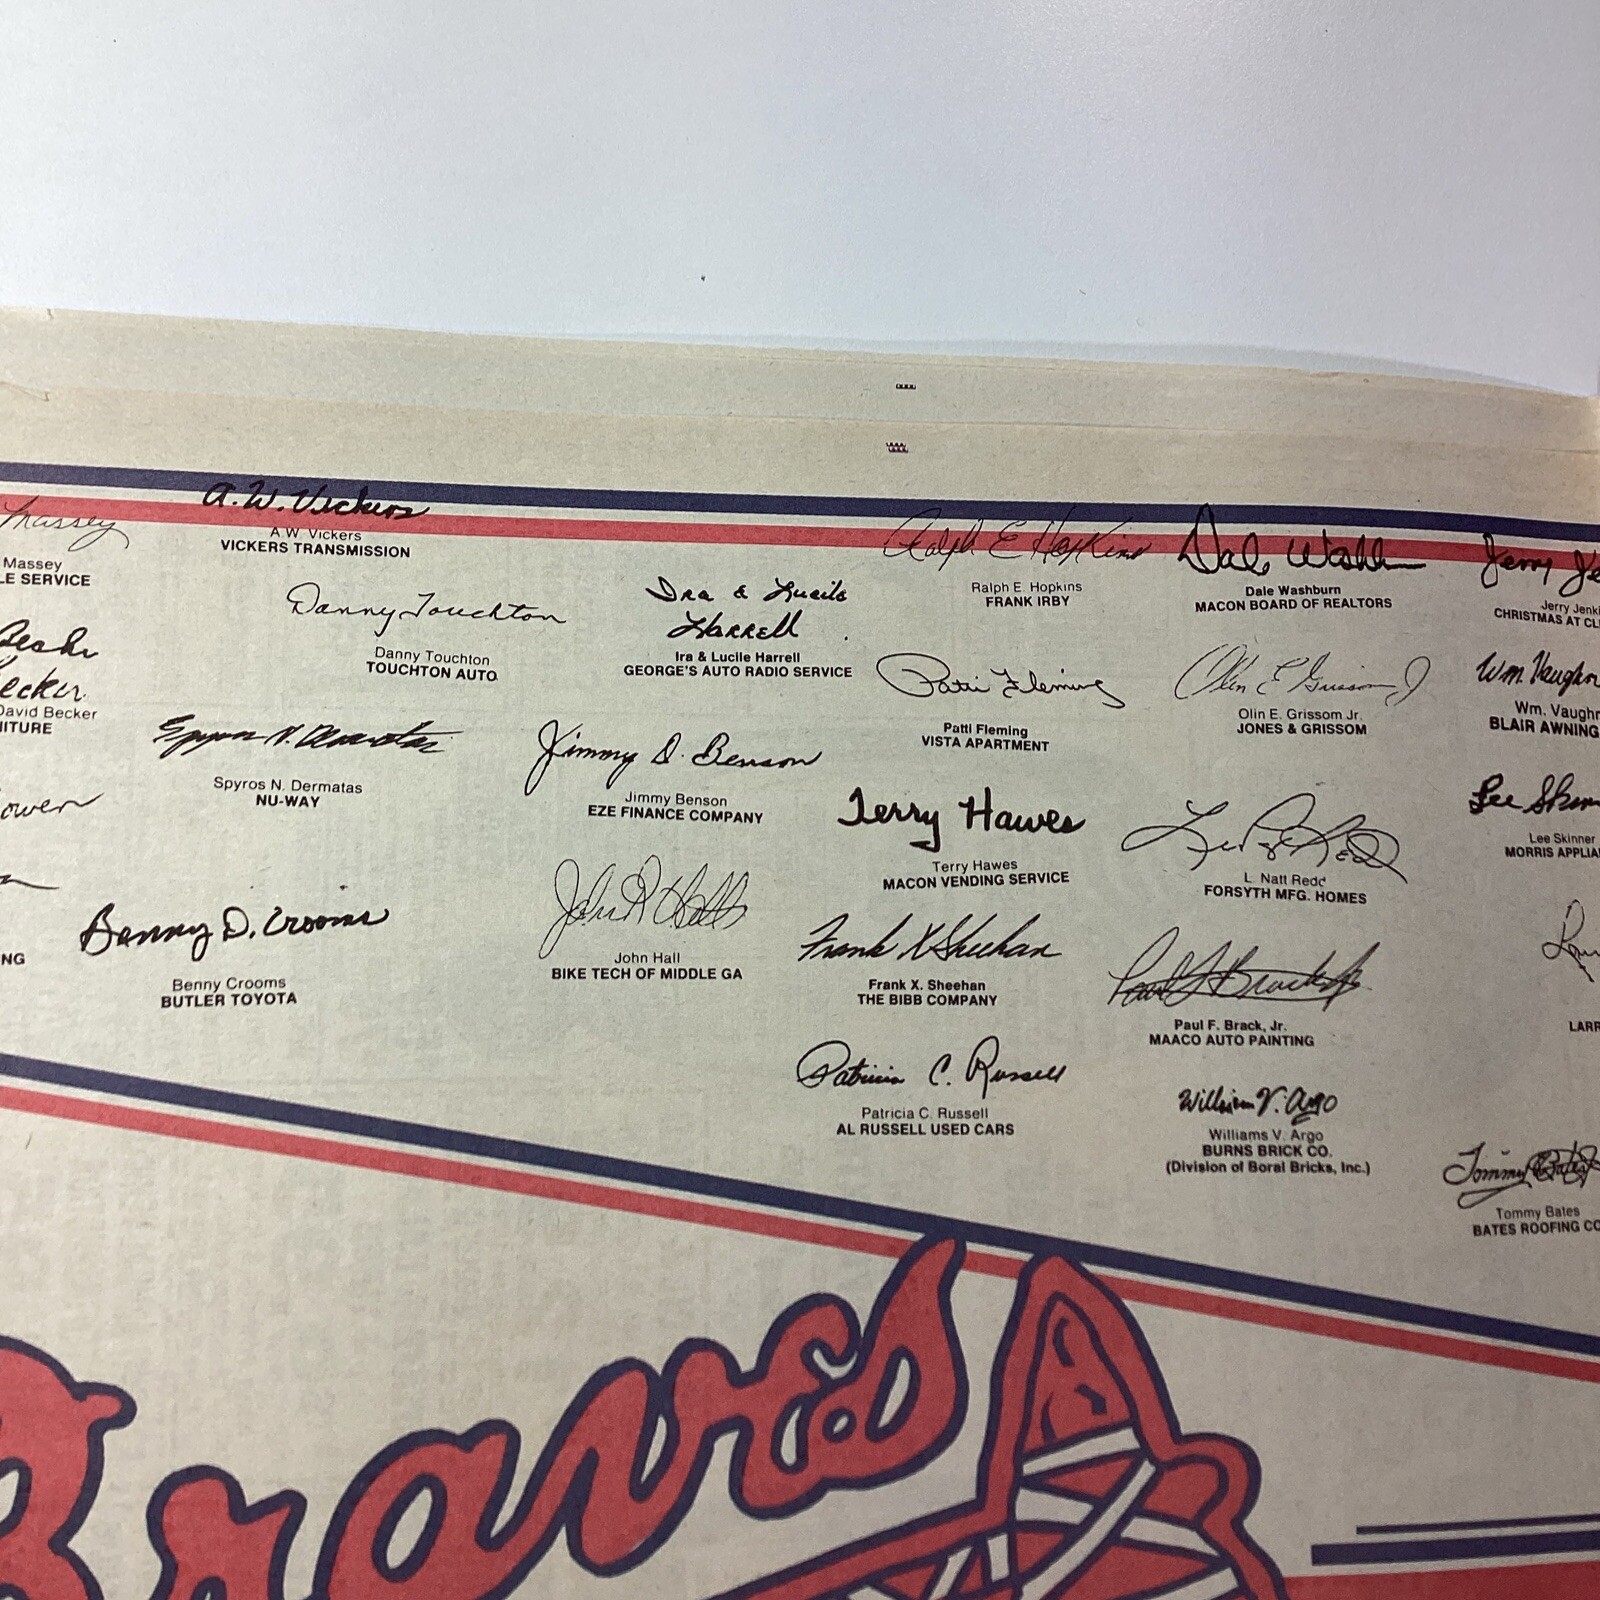 Massey
Massey
LE SERVICE
ecker
David Becker
ITURE
ower
NG
A.W. Vickers
A.W. Vickers
VICKERS TRANSMISSION
Danny Touchton
Danny Touchton
TOUCHTON AUTO
Spyros N. Dermatas
Spyros N. Dermatas
NU-WAY
Benny D. Crooms
Benny Crooms
BUTLER TOYOTA
Ira & Lucile
Harrell
Ira & Lucile Harrell
GEORGE'S AUTO RADIO SERVICE
Jimmy D. Benson
Jimmy Benson
EZE FINANCE COMPANY
John R Hall
John Hall
BIKE TECH OF MIDDLE GA
Ralph E Hopkins
Ralph E. Hopkins
FRANK IRBY
Patti Fleming
Patti Fleming
VISTA APARTMENT
Terry Hawes
Terry Hawes
MACON VENDING SERVICE
Frank X Sheehan
Frank X. Sheehan
THE BIBB COMPANY
Patricia C. Russell
Patricia C. Russell
AL RUSSELL USED CARS
Dale Washburn
MACON BOARD OF REALTORS
Olin E Grissom J
Olin E. Grissom Jr.
JONES & GRISSOM
L. Natt Redd
FORSYTH MFG. HOMES
Paul F Brack Jr.
Paul F. Brack, Jr.
MAACO AUTO PAINTING
William V. Argo
Williams V. Argo
BURNS BRICK CO.
(Division of Boral Bricks, Inc.)
Jerry Je
Jerry Jenki
CHRISTMAS AT CL
Wm. Vaughn
Wm. Vaughn
BLAIR AWNING
Lee Skin
Lee Skinner
MORRIS APPLIA
LARR
Tommy Bates
Tommy Bates
BATES ROOFING CO
Braves